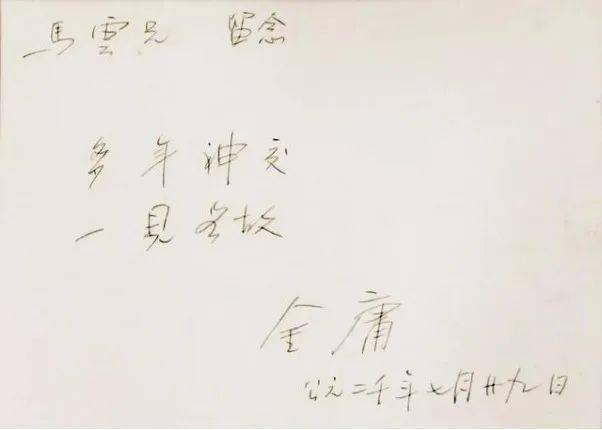 馬雲兄 留念
多年神交
一見如故
金庸
公元二千年七月廿九日